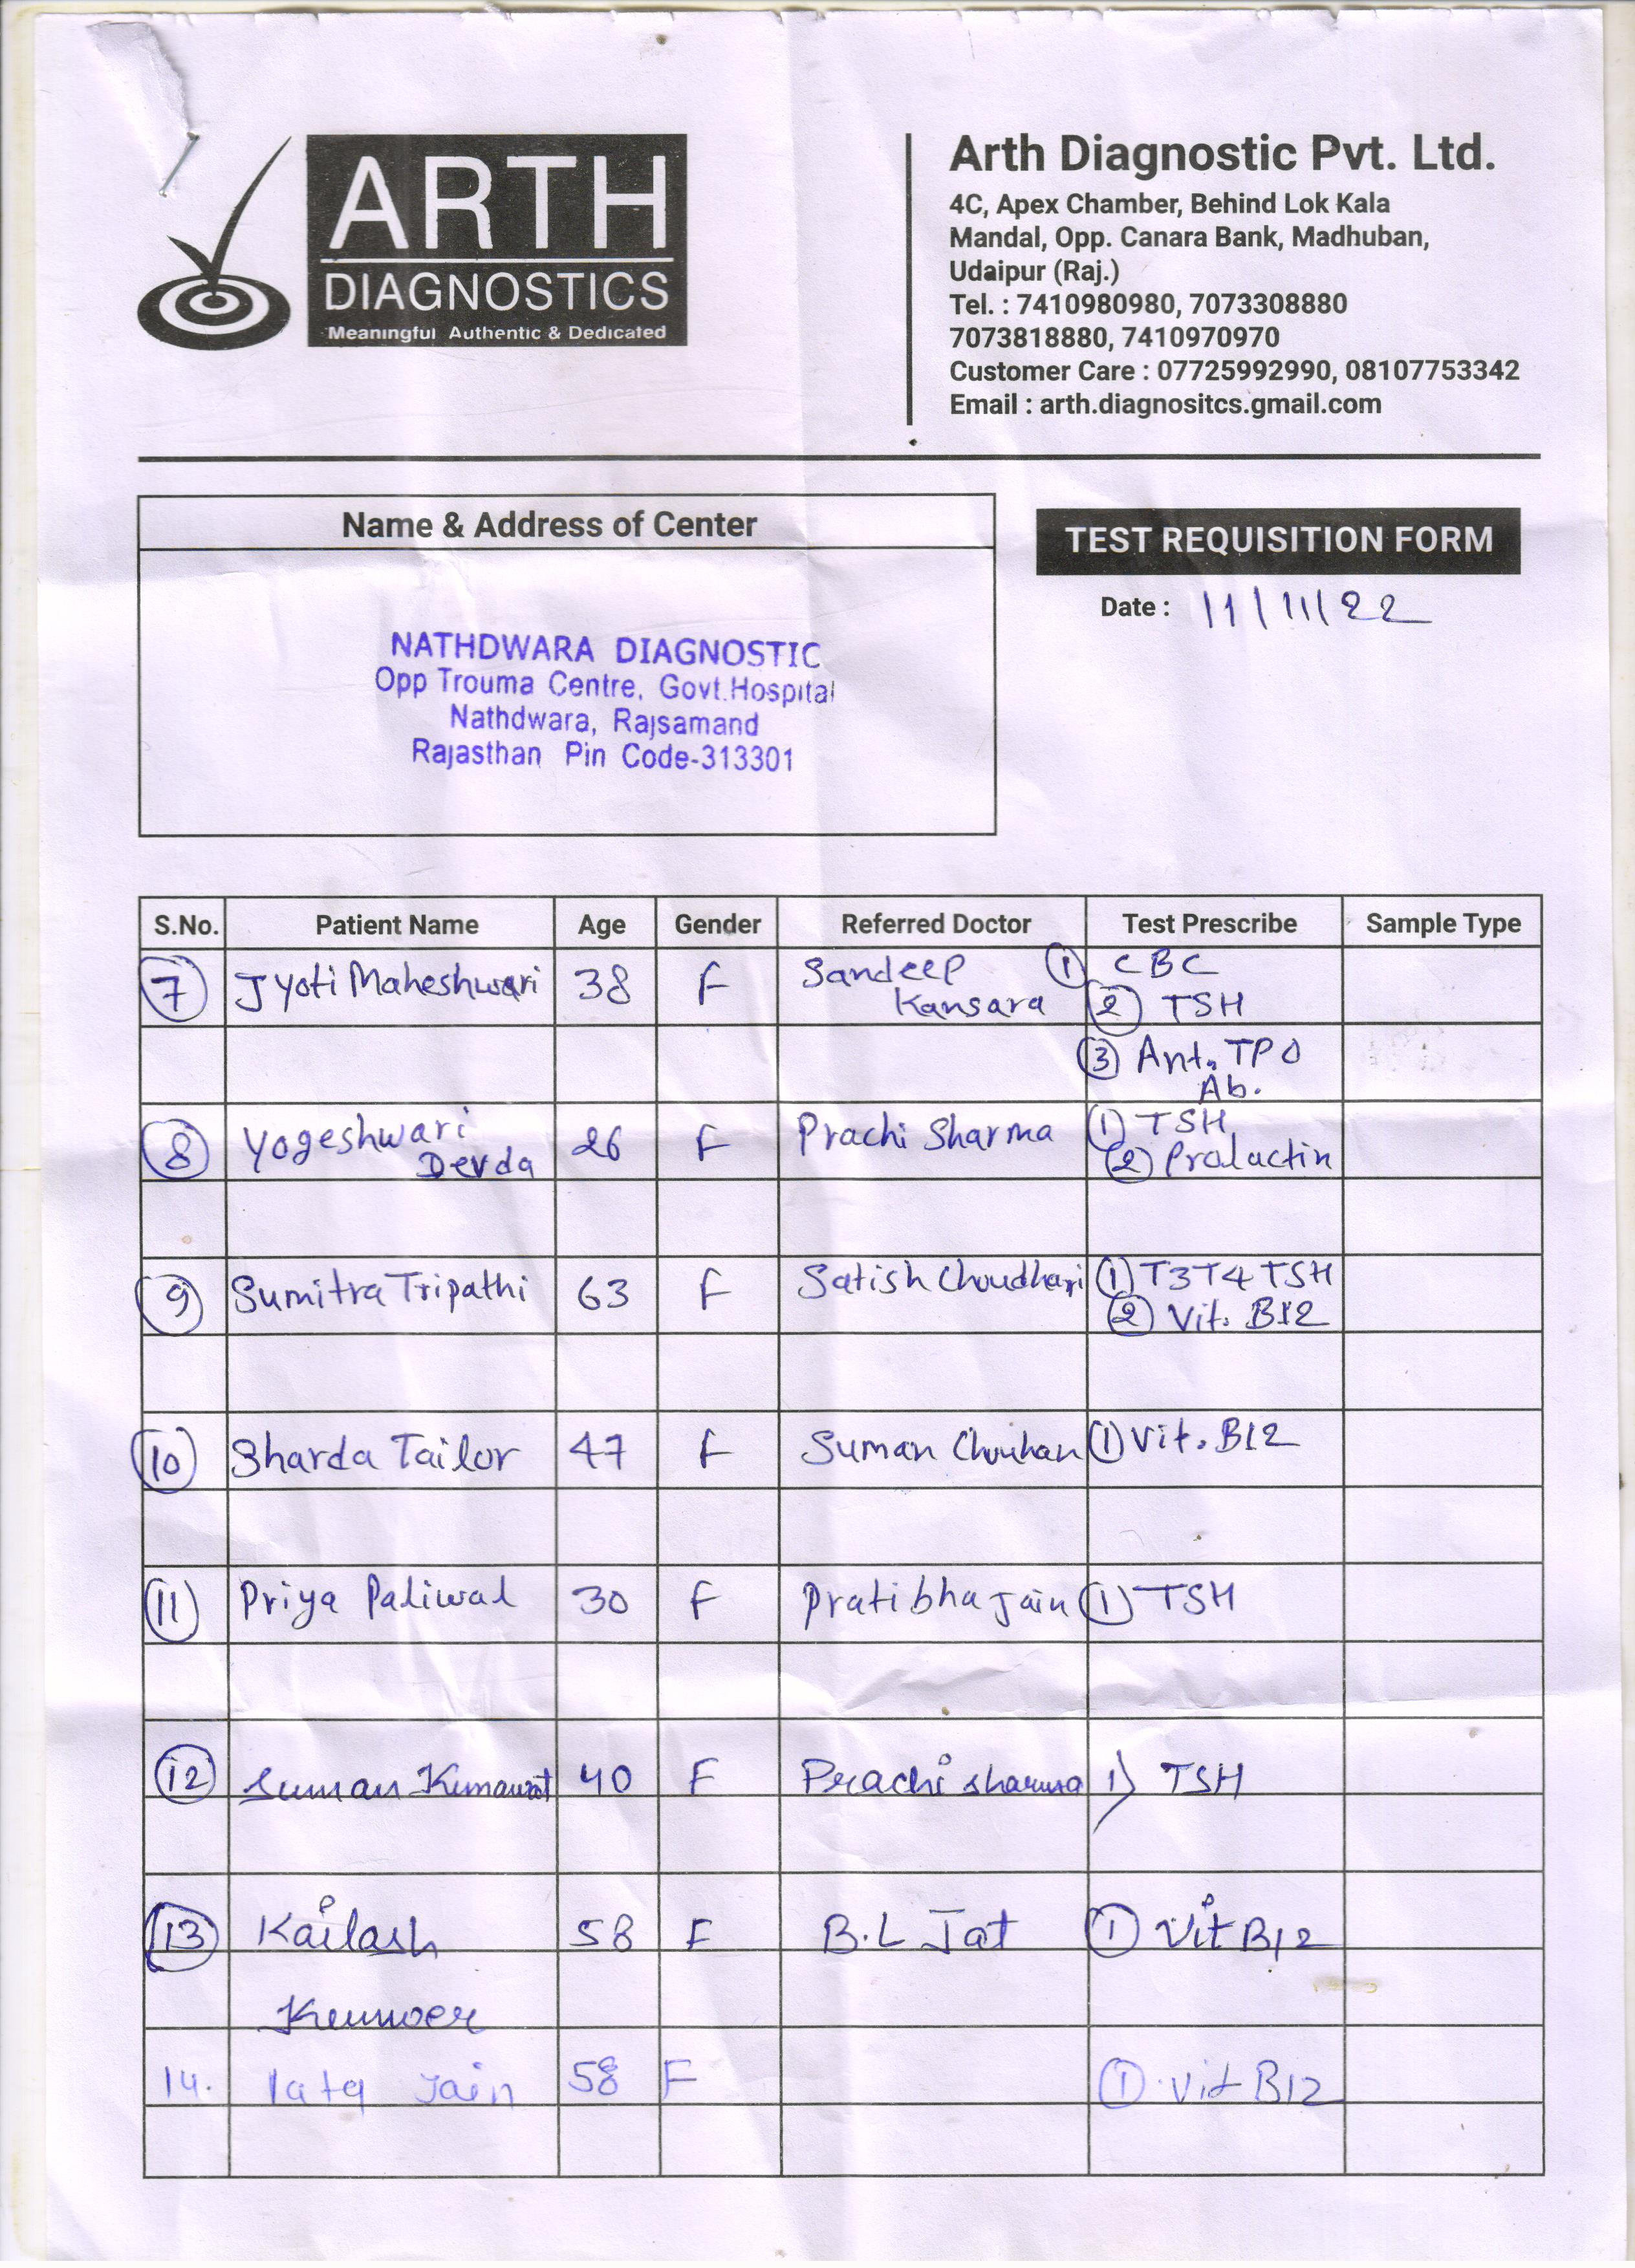 ARTH
DIAGNOSTICS
Meaningful Authentic & Dedicated
Arth Diagnostic Pvt. Ltd.
4C, Apex Chamber, Behind Lok Kala
Mandal, Opp. Canara Bank, Madhuban,
Udaipur (Raj.)
Tel. : 7410980980, 7073308880
7073818880, 7410970970
Customer Care : 07725992990, 08107753342
Email : arth.diagnositcs.gmail.com
Name & Address of Center
NATHDWARA DIAGNOSTIC
Opp Trouma Centre, Govt.Hospital
Nathdwara, Rajsamand
Rajasthan Pin Code-313301
TEST REQUISITION FORM
Date : 11/11/22
S.No. Patient Name Age Gender Referred Doctor Test Prescribe Sample Type
7 Jyoti Maheshwari 38 F Sandeep 1 CBC
Kansara 2 TSH
3 Ant. TPO
Ab.
8 Yogeshwari 26 F Prachi Sharma 1 TSH
Devda 2 Prolactin
9 Sumitra Tripathi 63 F Satish Choudhari 1 T3T4 TSH
2 Vit. B12
10 Sharda Tailor 47 F Suman Chouhan 1 Vit. B12
11 Priya Paliwal 30 F Pratibha Jain 1 TSH
12 Suman Kumawat 40 F Prachi sharma 1) TSH
13 Kailash 58 F B.L Jat 1 Vit B12
Kunwer
14. lata Jain 58 F 1 Vit B12